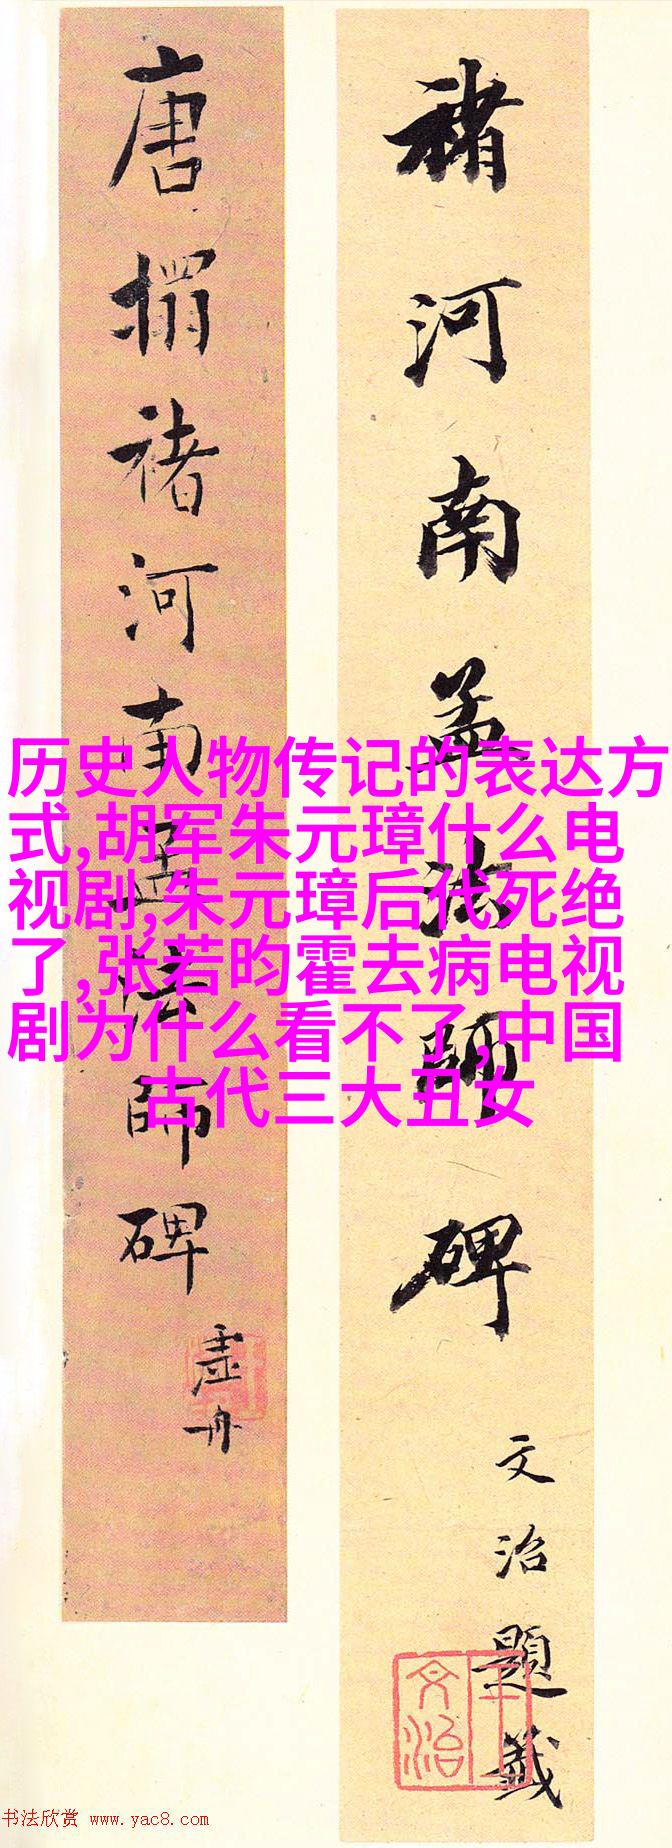 褚河南孟法師碑
文治題籤
王文治
唐搨褚河南孟法師碑
虚舟
历史人物传记的表达方
式,胡军朱元璋什么电
视剧,朱元璋后代死绝
了,张若昀霍去病电视
剧为什么看不了,中国
古代三大丑女
书法欣赏 www.yac8.com